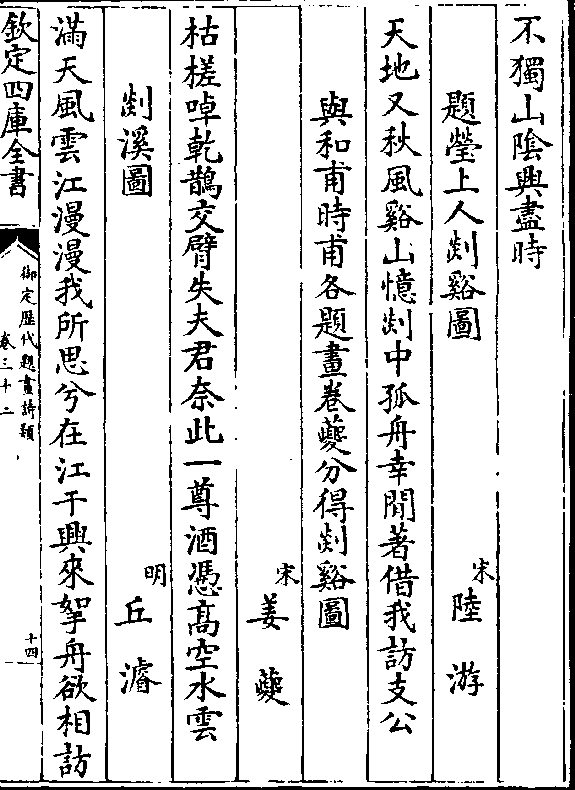 不獨山陰興盡時
題瑩上人剡谿圖 宋 陸游
天地又秋風谿山憶剡中孤舟幸閒著借我訪支公
與和甫時甫各題畫卷夔分得剡谿圖
宋 姜夔
枯槎啅乾鵲交臂失夫君奈此一尊酒憑髙空水雲
剡溪圖 明 丘濬
滿天風雲江漫漫我所思兮在江干興來拏舟欲相訪
欽定四庫全書
御定歴代題畫詩類
卷三十二
十四